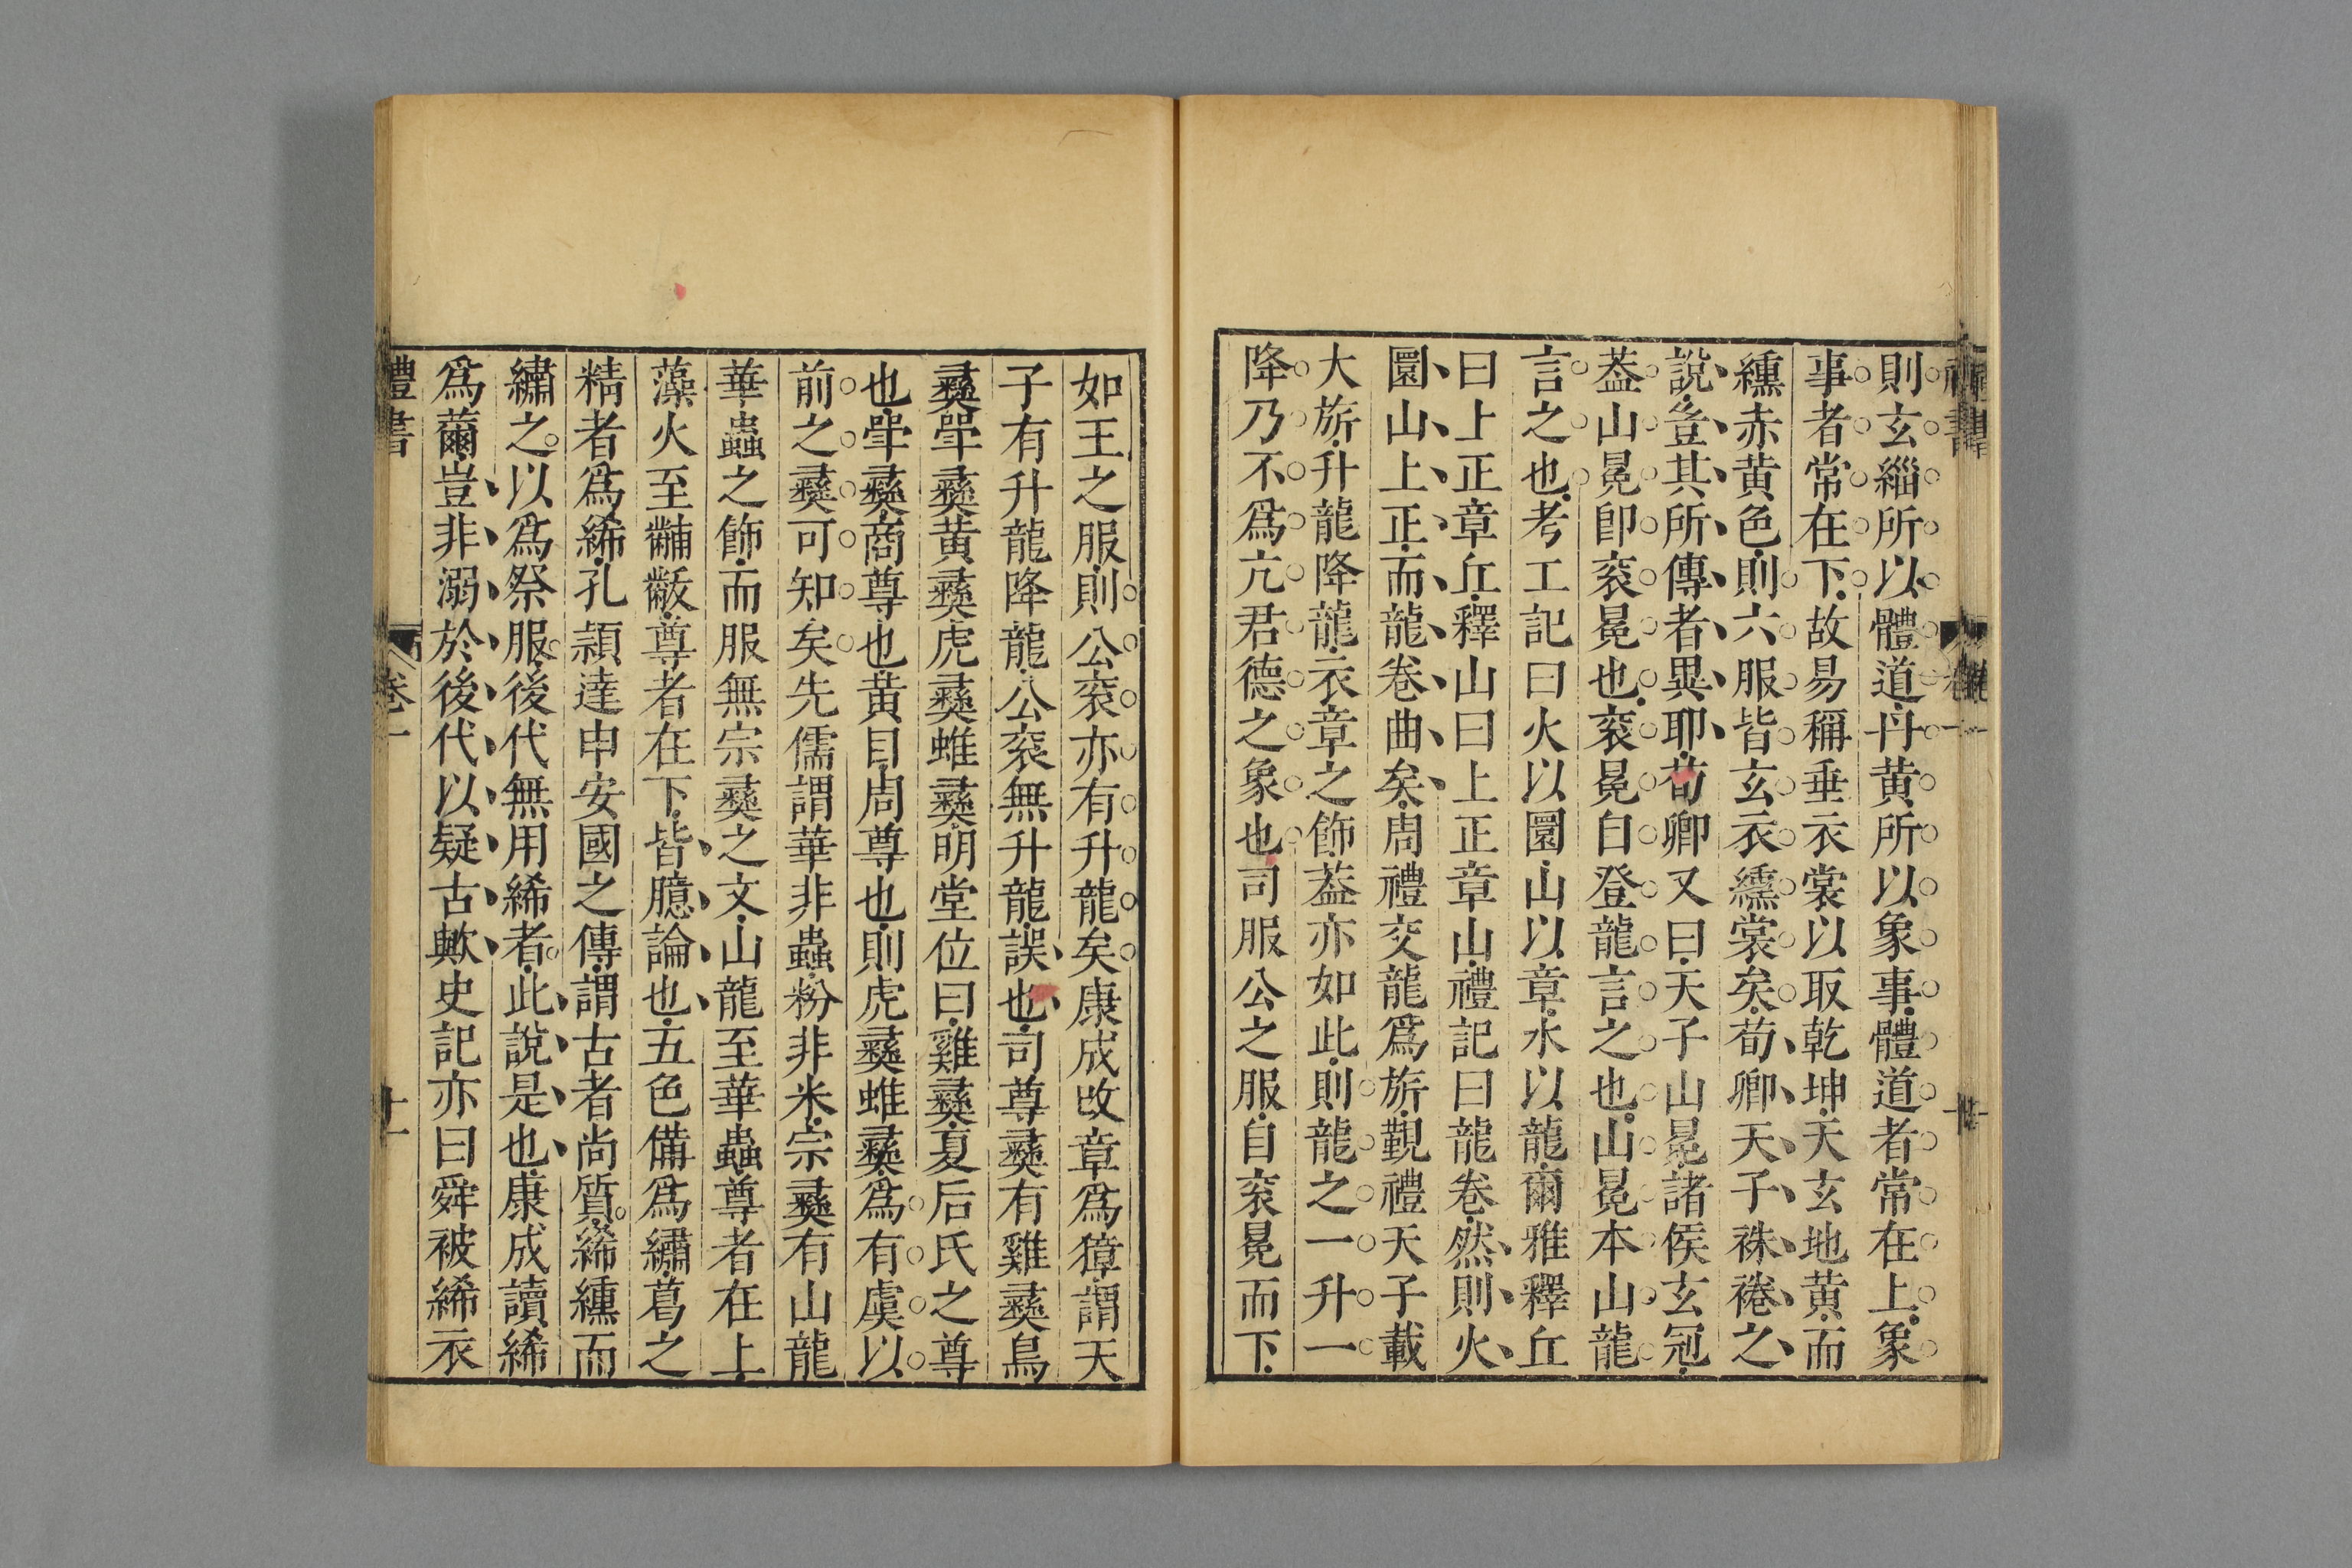 則玄緇所以體道丹黄所以象事體道者常在上象
事者常在下故易稱垂衣裳以取乾坤天玄地黄而
纁赤黄色則六服皆玄衣纁裳矣荀卿天子袾裷之
說豈其所傳者異耶荀卿又曰天子山冕諸侯玄冠
葢山冕卽衮冕也衮冕自登龍言之也山冕本山龍
言之也考工記曰火以圜山以章水以龍爾雅釋丘
曰上正章丘釋山曰上正章山禮記曰龍卷然則火
圜山上正而龍卷曲矣周禮交龍爲旂覲禮天子載
大旂升龍降龍衣章之飾葢亦如此則龍之一升一
降乃不爲亢君德之象也司服公之服自衮冕而下
如王之服則公衮亦有升龍矣康成攺章爲獐謂天
子有升龍降龍公衮無升龍誤也司尊彝有雞彝鳥
彝斝彝黄彝虎彝蜼彝明堂位曰雞彝夏后氏之尊
也斝彝商尊也黄目周尊也則虎彝蜼彝爲有虞以
前之彝可知矣先儒謂華非蟲粉非米宗彝有山龍
華蟲之飾而服無宗彝之文山龍至華蟲尊者在上
藻火至黼黻尊者在下皆臆論也五色備爲繡葛之
精者爲絺孔頴達申安國之傳謂古者尚質絺纁而
繡之以爲祭服後代無用絺者此說是也康成讀絺
爲薾豈非溺於後代以疑古歟史記亦曰舜被絺衣
禮書
卷一
十一